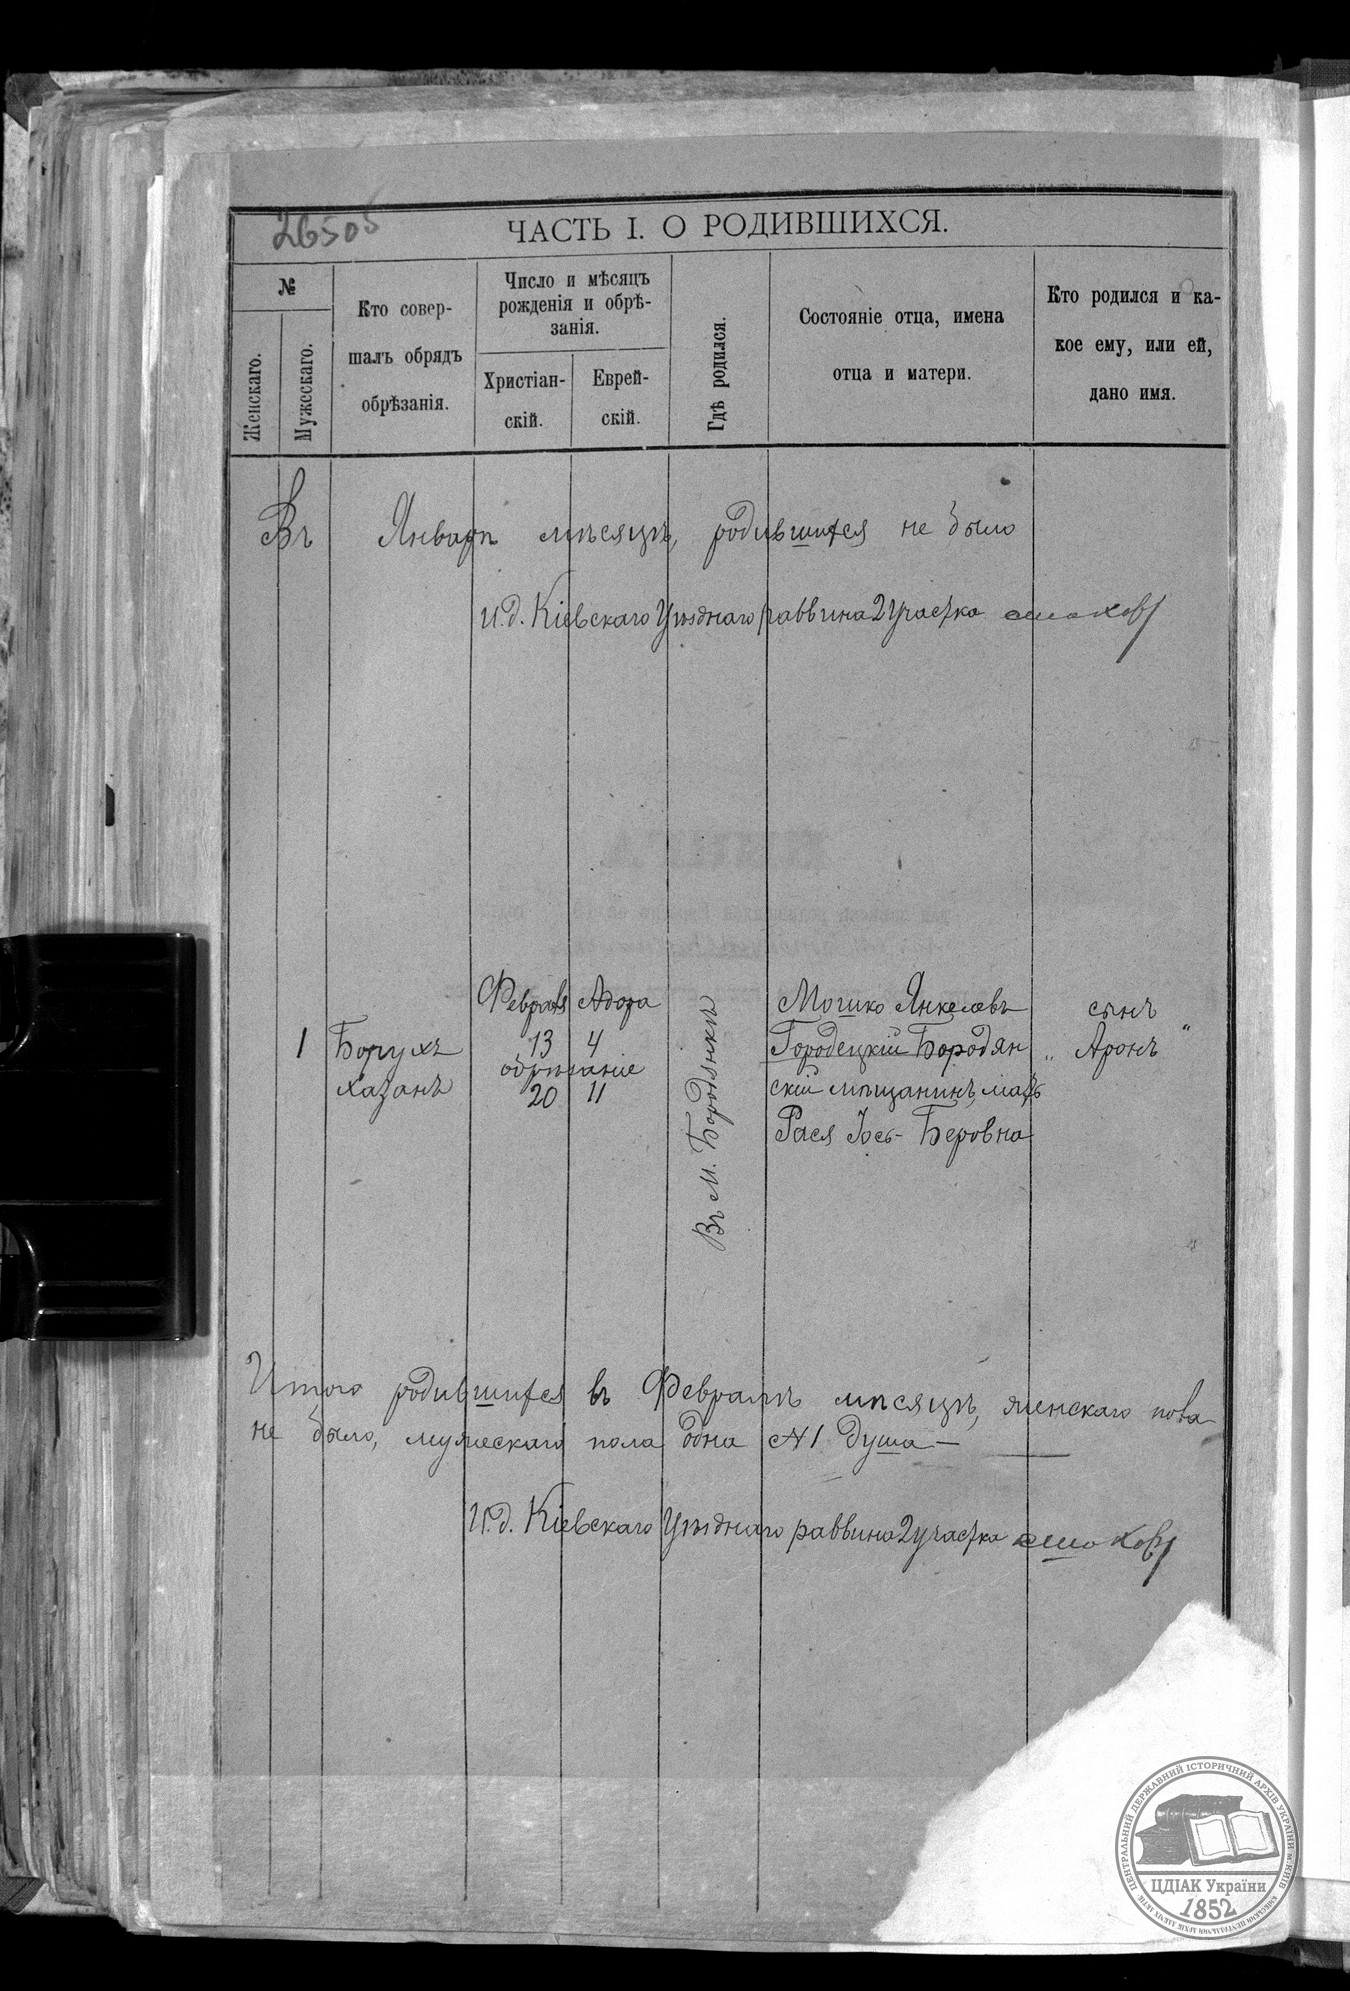 26505
ЧАСТЬ I. О РОДИВШИХСЯ.
№
Женскаго.
Мужескаго.
Кто совер-
шалъ обрядъ
обрѣзанія.
Число и мѣсяцъ
рожденія и обрѣ-
занія.
Христіан-
скій.
Еврей-
скій.
Гдѣ родился.
Состояніе отца, имена
отца и матери.
Кто родился и ка-
кое ему, или ей,
дано имя.
Въ Январѣ мѣсяцѣ, родившихся не было
И.д. Кіевскаго Уѣзднаго раввина 2 участка
1
Борухъ
Хазанъ
Февраля Адора
13 4
обрѣзаніе
20 11
Въ м. Бородянкѣ
Мошко Янкелевъ
Городецкій Бородян
скій мѣщанинъ, мать
Рася Іось-Беровна
сынъ
„ Аронъ "
Итого родившихся въ Февралѣ мѣсяцѣ, женскаго пола
не было, мужескаго пола одна №1 душа —
И.д. Кіевскаго Уѣзднаго раввина 2 участка
ЦЕНТРАЛЬНИЙ ДЕРЖАВНИЙ ІСТОРИЧНИЙ АРХІВ УКРАЇНИ м. КИЇВ
ЦДІАК України
1852